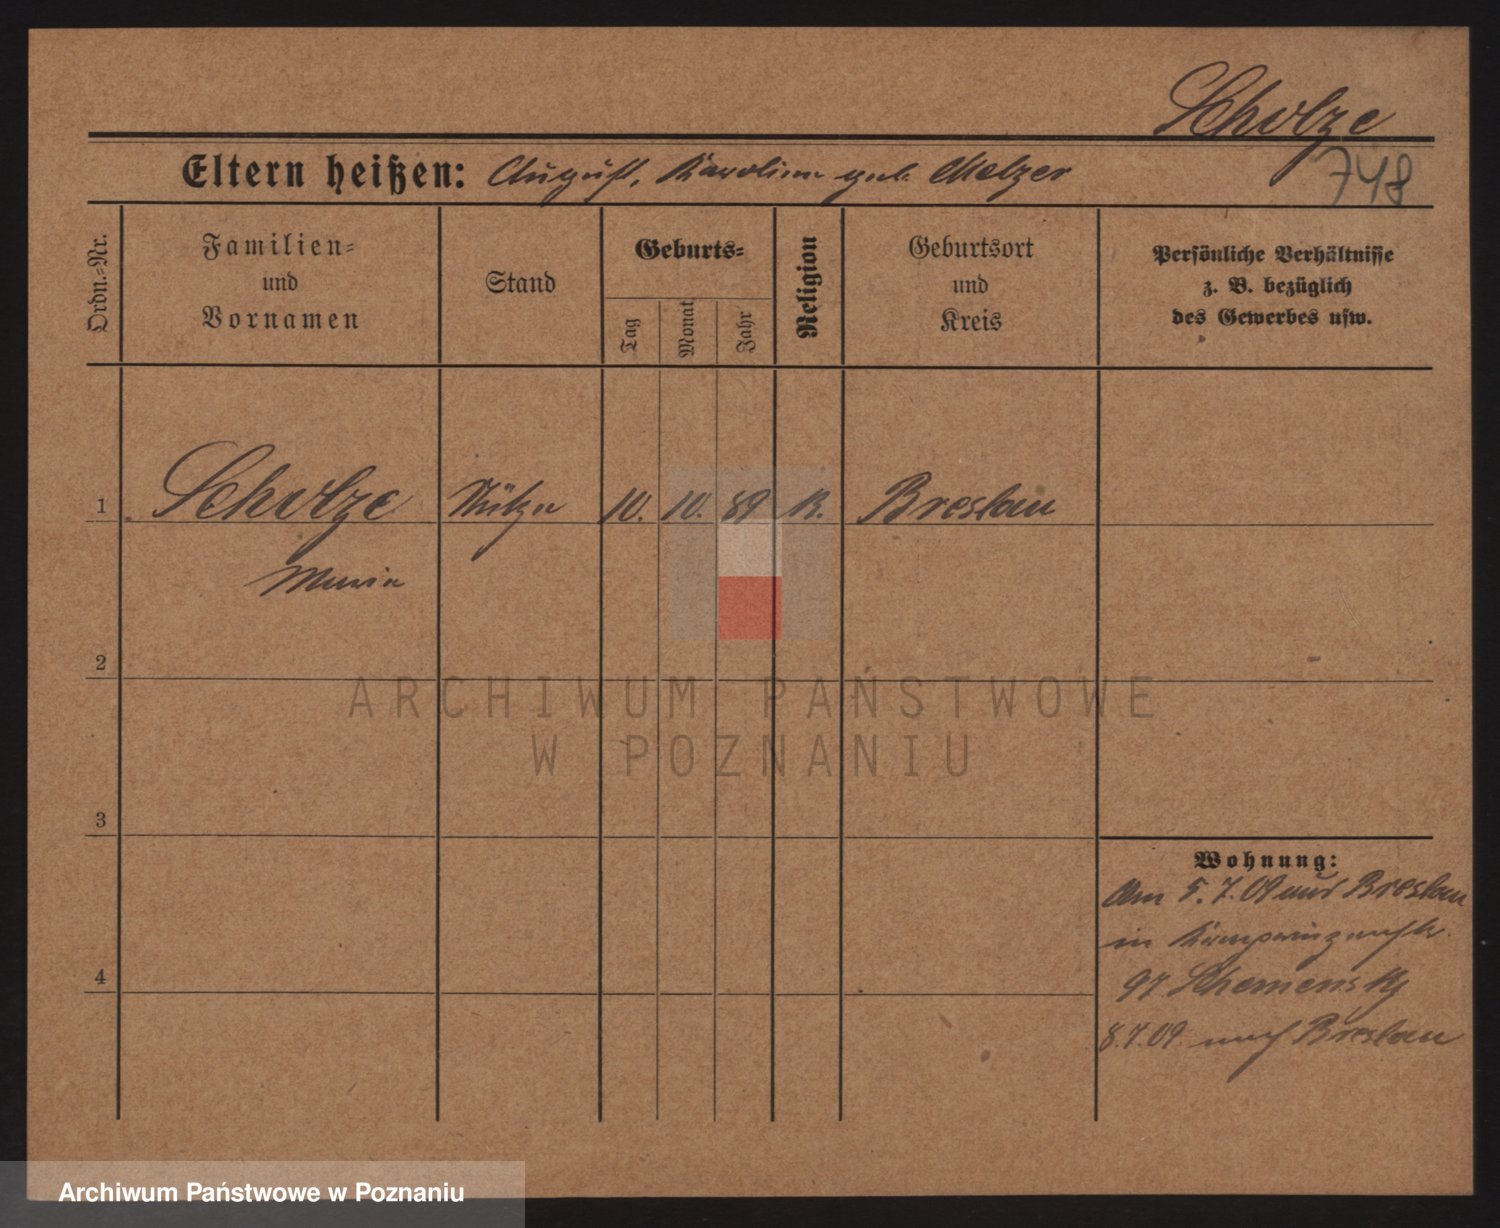 Scholze
Eltern heißen: August, Karoline geb. Melzer
748
Ordn.=Nr.
Familien=
und
Vornamen
Stand
Geburts=
Tag
Monat
Jahr
Religion
Geburtsort
und
Kreis
Persönliche Verhältnisse
z. B. bezüglich
des Gewerbes usw.
1
Scholze
Stütze
10.
10.
89
K.
Breslau
Maria
2
ARCHIWUM PAŃSTWOWE
W POZNANIU
3
4
Wohnung:
Am 5.7.09 aus Breslau
in
97
8.7.09 nach Breslau
Archiwum Państwowe w Poznaniu